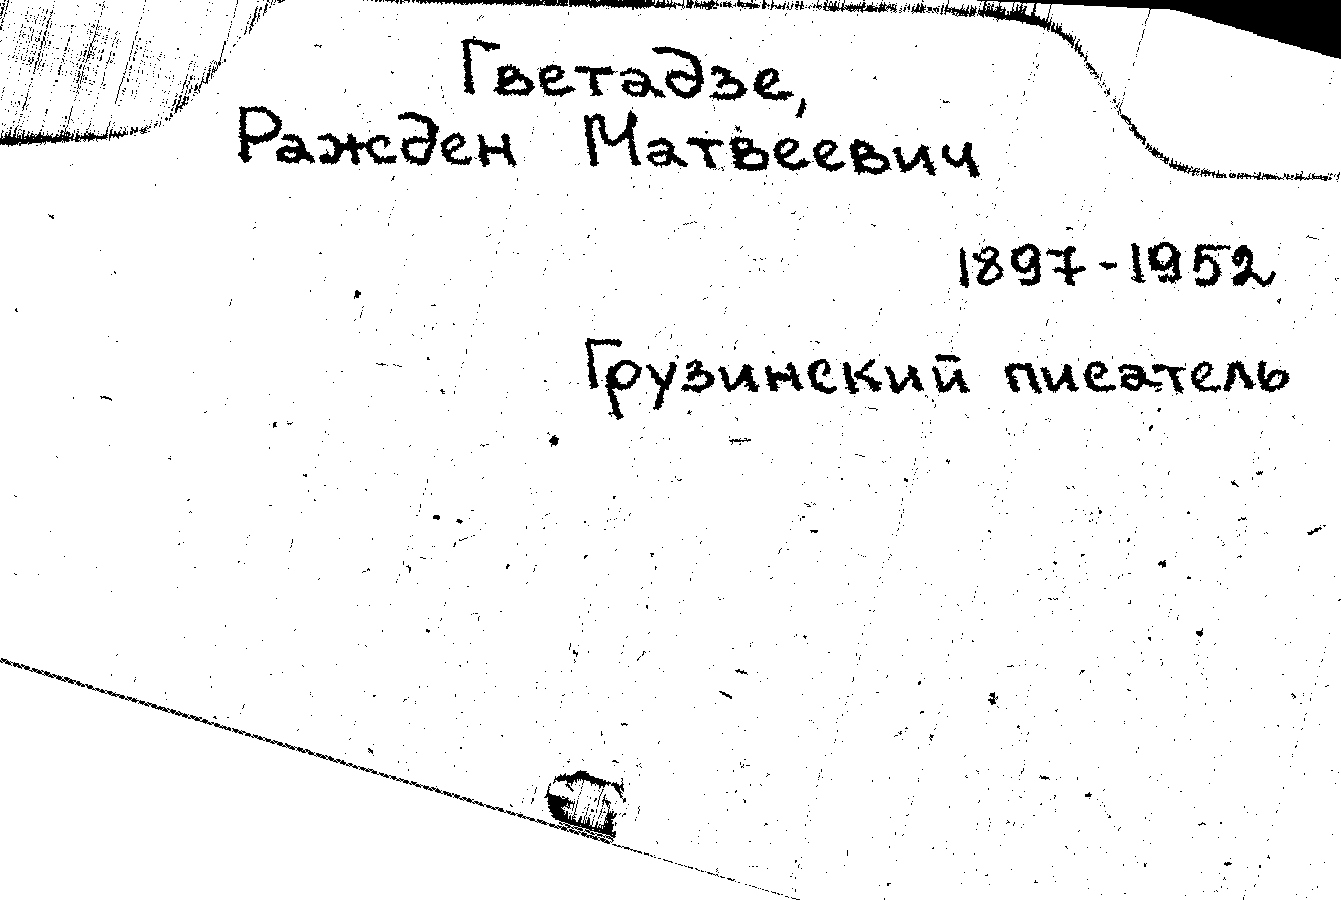 Гветадзе,
Ражден Матвеевич
1897-1952
Грузинский писатель